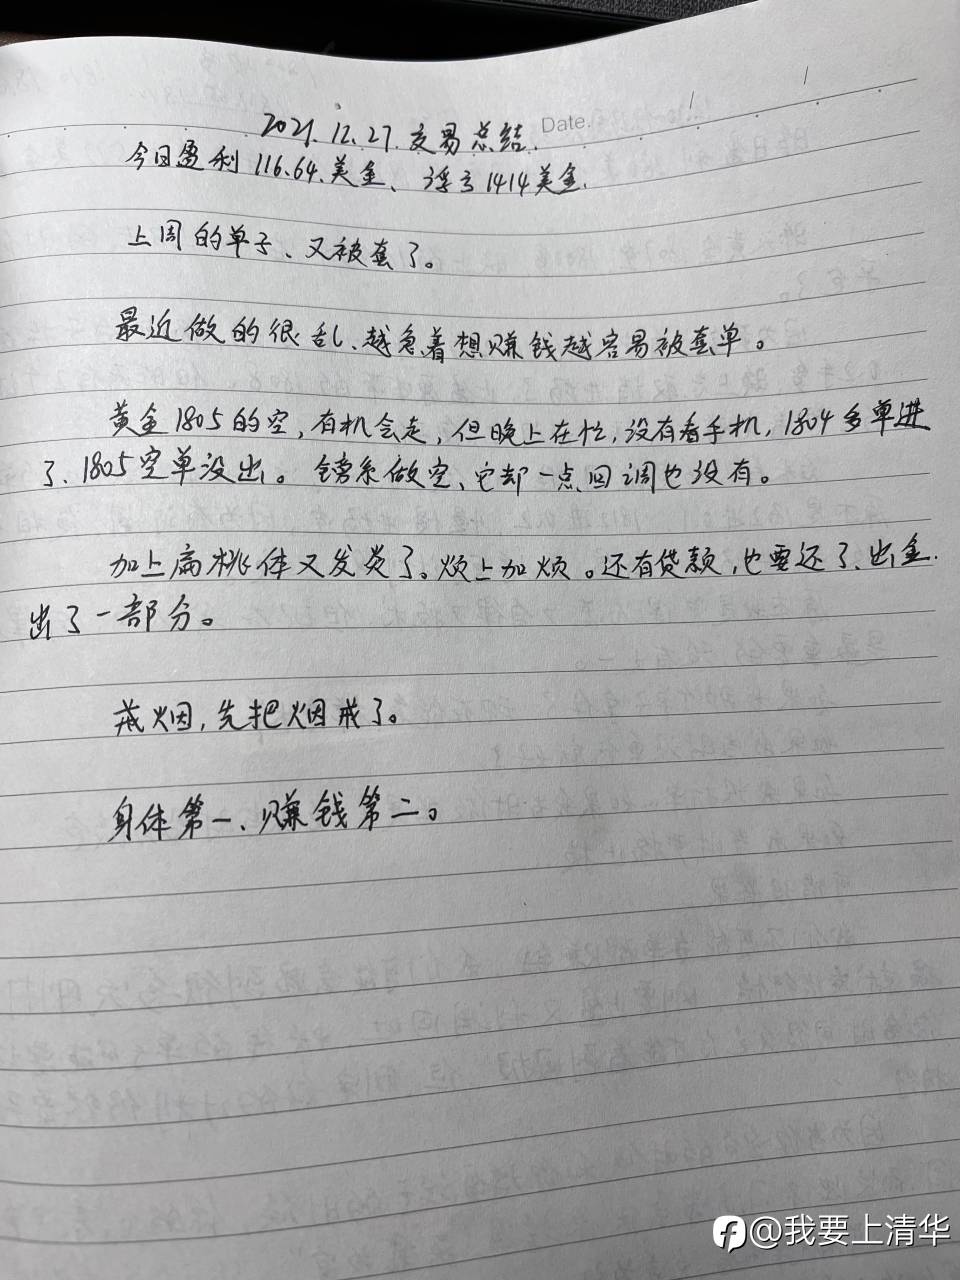 Date.
2021.12.27.交易总结.
今日盈利116.64.美金、浮亏1414美金.
上周的单子、又被套了。
最近做的很乱、越急着想赚钱越容易被套单。
黄金1805的空，有机会走，但晚上在忙，没有看手机，1804多单进
了、1805空单没出。镑系做空、它却一点回调也没有。
加上扁桃体又发炎了。烦上加烦。还有贷款，也要还了、出金.
出了一部分。
戒烟，先把烟戒了。
身体第一、赚钱第二。
@我要上清华